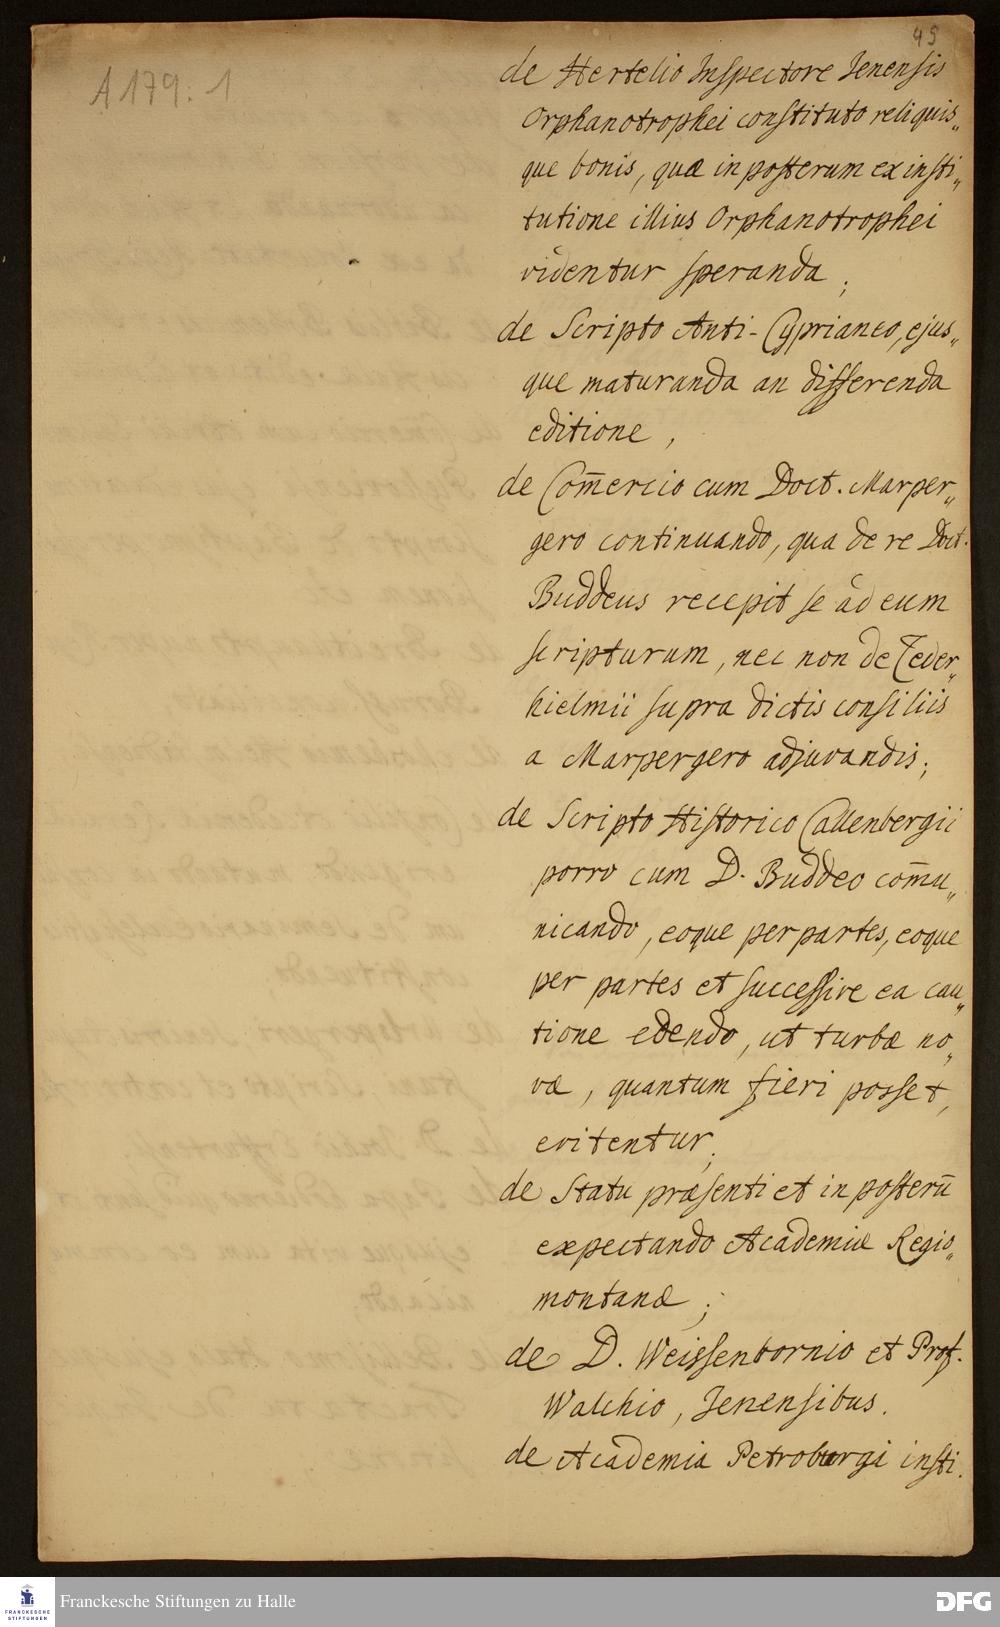 45
A 179 : 1
de Hertelio Inspectore Jenensis
Orphanotrophei constituto reliquis„
que bonis, quæ in posterum ex insti„
tutione illius Orphanotrophei
videntur speranda ;
de Scripto Anti-Cyprianeo, ejus„
que maturanda an differenda
editione ,
de Com̄ercio cum Doct. Marper„
gero continuando, qua de re Doct.
Buddeus recepit se ad eum
scripturum, nec non de Ceder„
hielmii supra dictis consiliis
a Marpergero adjuvandis ;
de Scripto Historico Callenbergii
porro cum D. Buddeo com̄u„
nicando, eoque per partes, eoque
per partes et successive ea cau„
tione edendo, ut turbæ no„
væ, quantum fieri posset,
evitentur ;
de Statu præsenti et in posterū
expectando Academiæ Regio„
montanæ ;
de D. Weissenbornio et Prof.
Walchio, Jenensibus.
de Academia Petroburgi insti„
FRANCKESCHE
STIFTUNGEN
Franckesche Stiftungen zu Halle
DFG